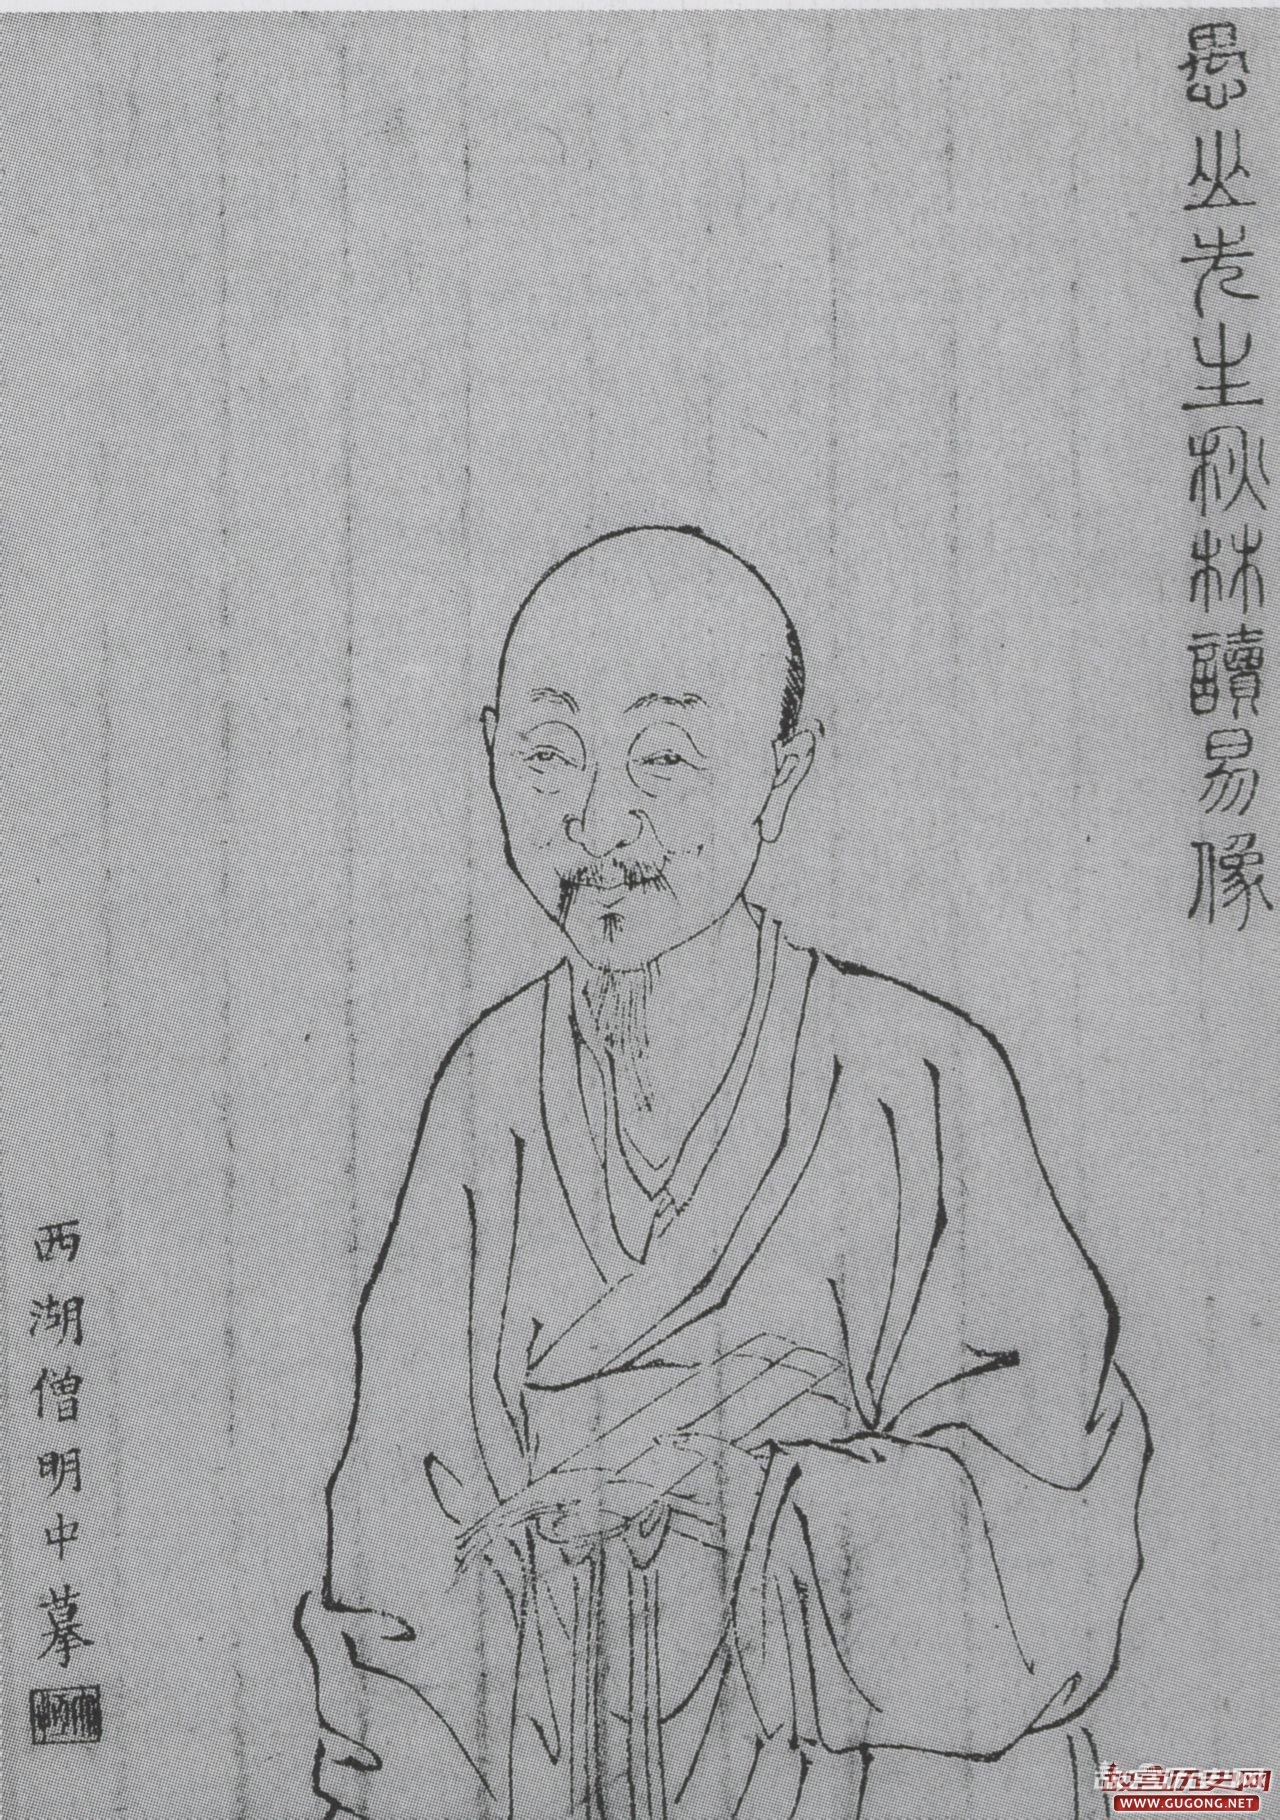 愚山先生秋林讀易像
西湖僧明中摹
故宫历史网
WWW.GUGONG.NET